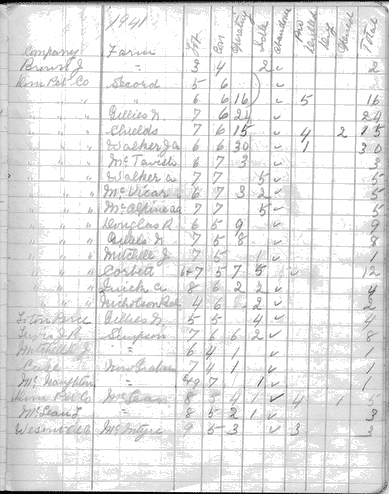 1941
Company Farm Lot Con Quality Idle Abandoned Pro Drilled Dry Total
Brown J. " 3 4 2 ✓ 2
Dom Pet Co Secord 5 6
" " 6 6 16 ✓ 5 16
" Gillies N. 7 6 24 ✓ 24
" Shields 7 6 15 ✓ 4 2 15
" Walker Ja 6 6 30 ✓ 1 30
" " McTavish 6 7 3 ✓ 3
" " Walker a 7 7 5 ✓ 5
" " McVicar 6 7 3 2 ✓ 5
" " McAlpine 7 7 5 ✓ 5
" " Douglas R 6 5 9 ✓ 9
" " Gillies N 7 5 8 ✓ 8
" " Mitchell J 7 5 1 ✓ 1
" " Corbett 6+7 5 7 5 ✓ 12
" " 8 6 2 2 ✓ 4
" " Nicholson 4 6 2 ✓ 2
Gillies N. 5 5 4 ✓ 4
Lewis J.R. Simpson 7 6 6 2 ✓ 8
Mitchell J " 6 4 1 ✓ 1
7 4 1 ✓ 1
McNaughton " 7 1 ✓ 1
Dom Pet Co McLean 8 5 4 1 ✓ 4 1 5
McLean L " 8 5 2 1 ✓ 3
McIntyre 9 5 3 ✓ 3 3